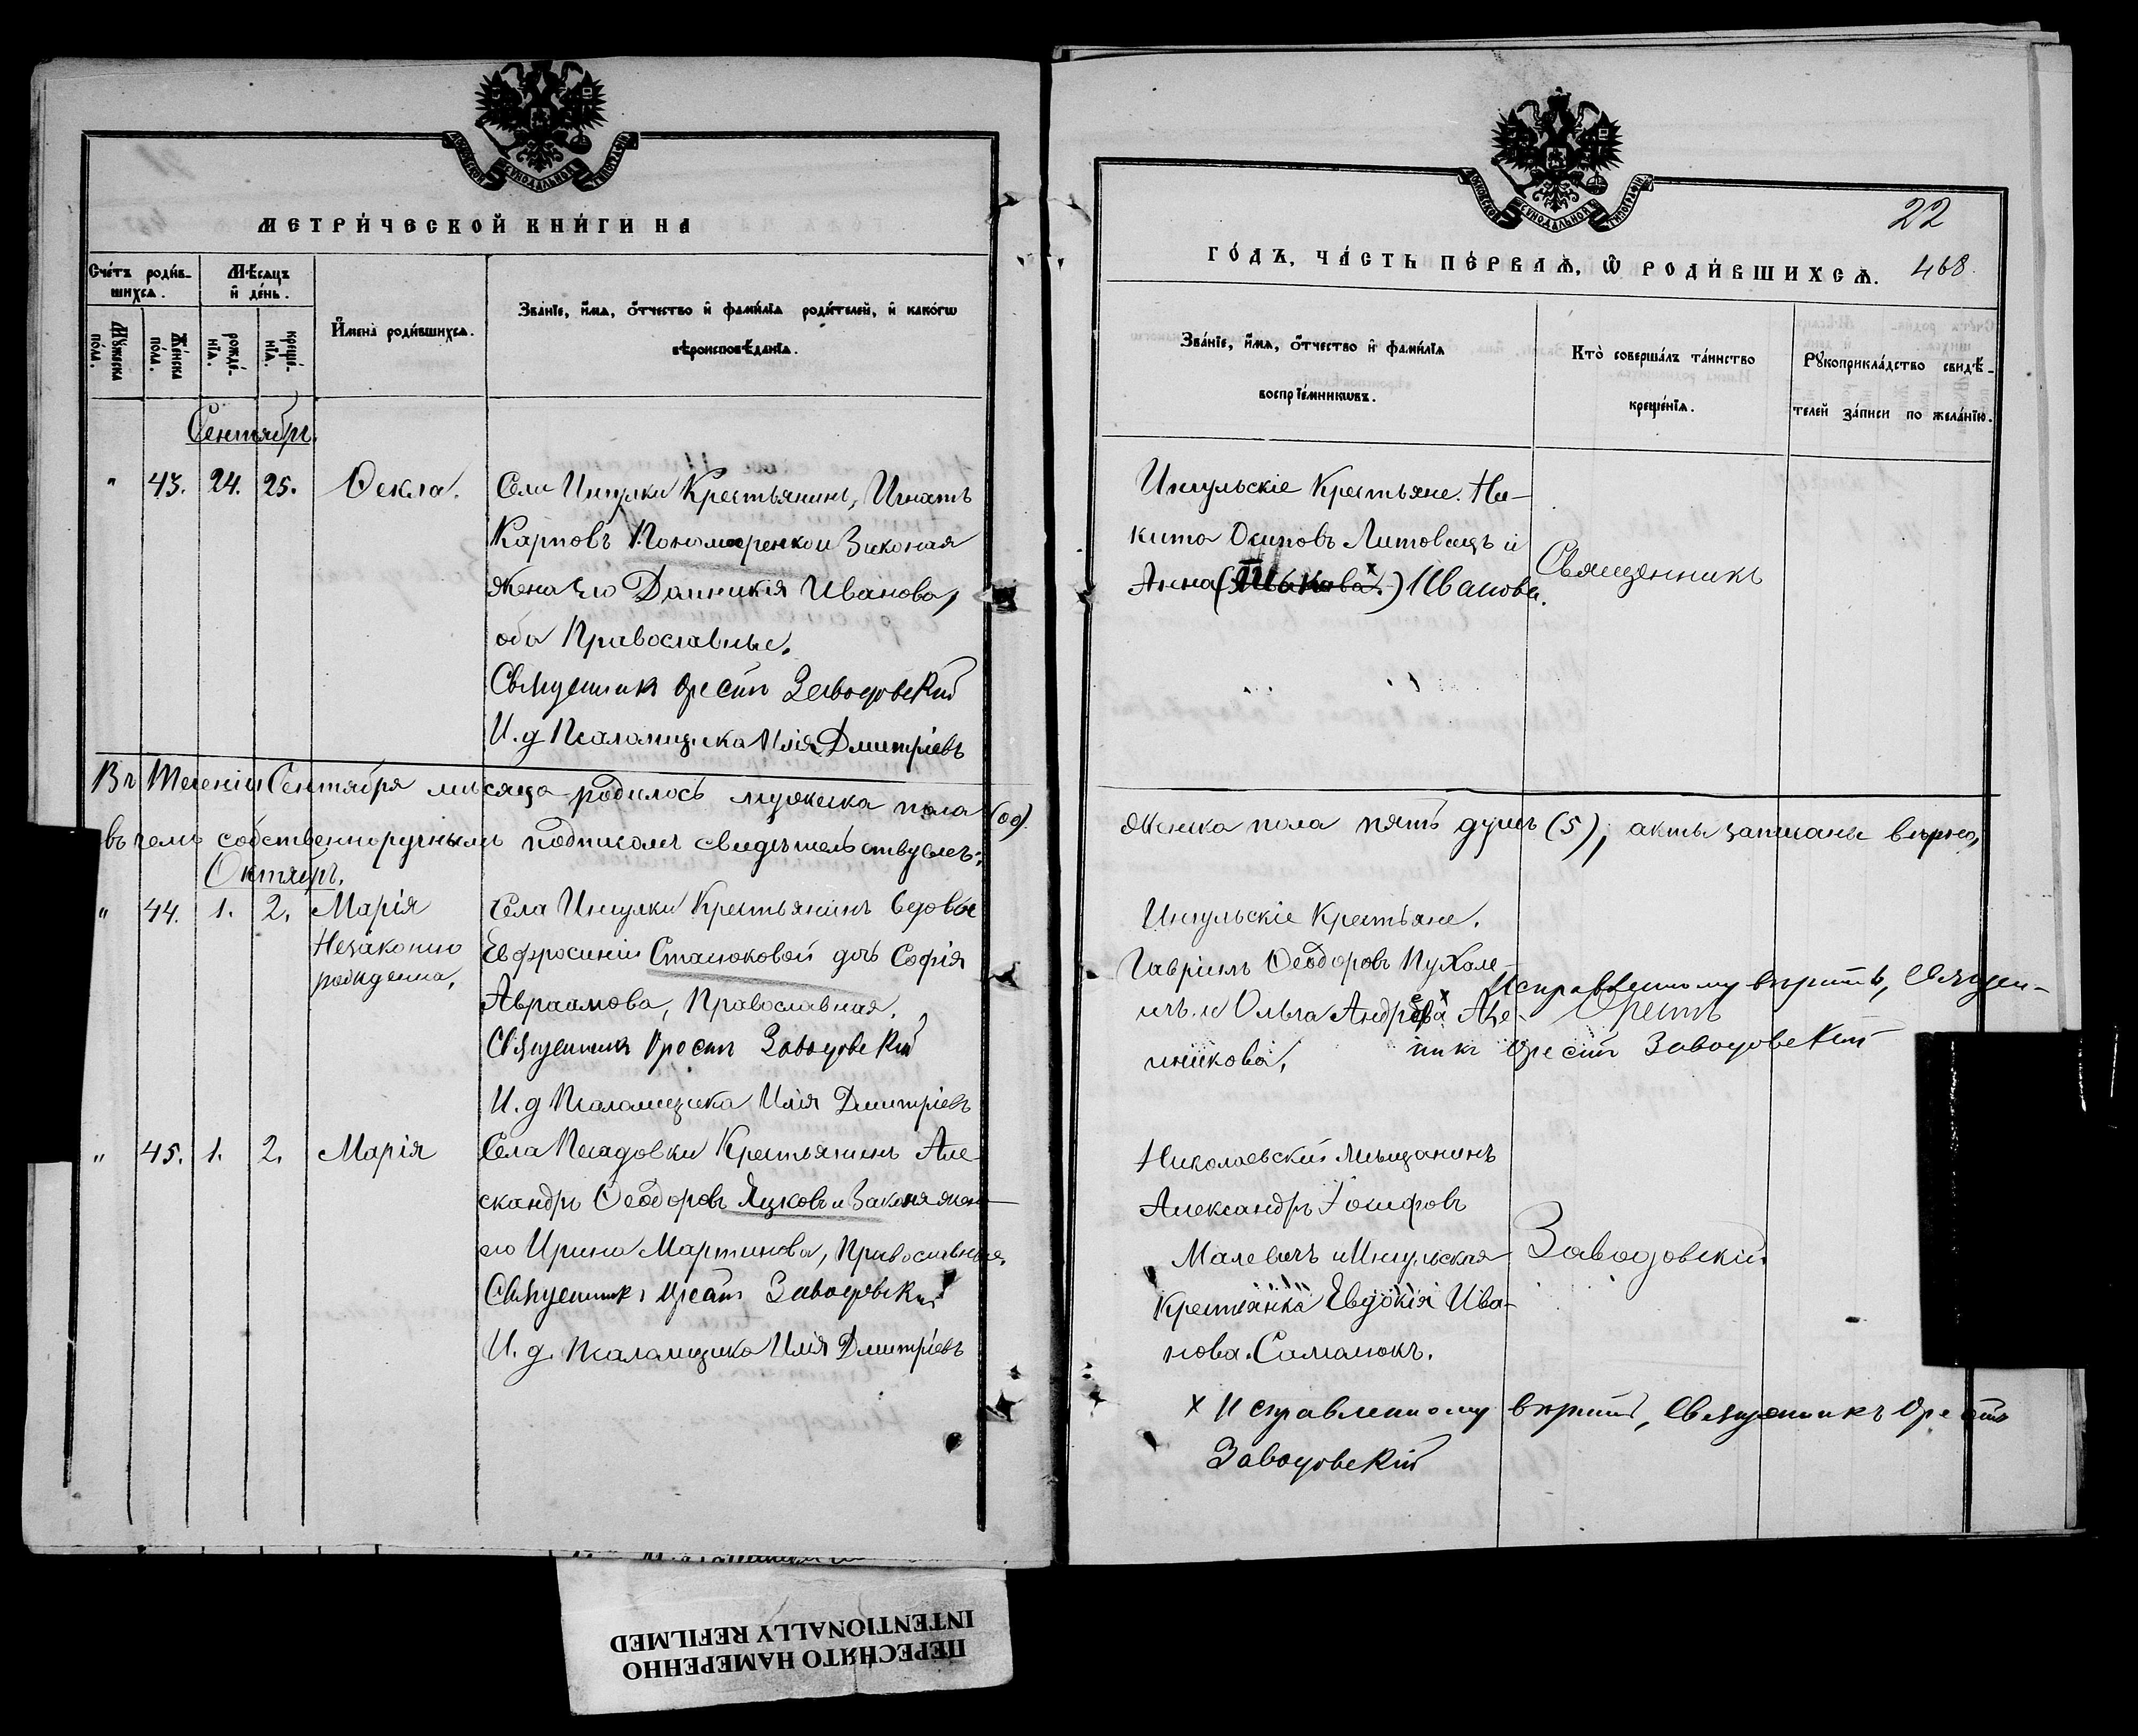 МЕТРИ́ЧЕСКОЙ КНИ́ГИ НА
Сче́тъ роди́в-
шихсѧ.
Мѣ́сѧцъ
и҆ де́нь.
Мꙋ́жеска
по́ла.
Же́нска
по́ла.
рожде́-
нїѧ.
креще́-
нїѧ.
И҆мена̀ роди́вшихсѧ.
Зва́нїе, и҆́мѧ, ѻ҆́тчество и҆ фами́лїѧ роди́телей, и҆ како́гѡ
вѣроисповѣ́данїѧ.
Сентябрь.
" 43. 24. 25. Ѳекла.
Села Ингулки Крестьянинъ, Игнатъ
Карповъ Пономаренко и Законая
жена его Домникія Иванова,
оба Православные.
Священникъ Орестъ Заводовскій
И. д Псаломщика Илія Дмитріевъ
Въ Теченіи Сентября мѣсяца родилось мужеска пола (00)
въ чемъ собственноручнымъ подписомъ свидѣтельствуемъ:
Октябрь.
" 44. 1. 2. Марія
Незаконно
рожденна,
Села Ингулки Крестьянинъ вдовы
Евфросиніи Стаюковой дочь Софія
Авраамова, Православная.
Священникъ Орестъ Заводовскій
И. д Псаломщика Илія Дмитріевъ
" 45. 1. 2. Марія
Села Песадовки Крестьянинъ Але
скандръ Ѳеодоровъ Яцковъ и Законя жена
его Ирина Мартинова, Православные.
Священникъ Орестъ Заводовскій
И. д. Псаломщика Илія Дмитріевъ
22
ГО́ДЪ, ЧА́СТЬ ПЕ́РВАѦ, Ѽ РОДИ́ВШИХСѦ.
468.
Зва́нїе, и҆́мѧ, ѻ҆́тчество и҆ фами́лїѧ
воспрїе́мникѡвъ.
Кто̀ соверша́лъ та́инство
креще́нїѧ.
Рꙋкоприкла́дство свидѣ́-
телей за́писи по жела́нїю.
Ингульскіе Крестьяне. Ни-
кита Осиповъ Литовецъ и
Анна Иванова.
Священникъ
Женска пола пять душъ (5), акты записаны вѣрно,
Ингульскіе Крестьяне.
Гавріилъ Ѳеодоровъ
и Ольга
Исправленному вѣрить, Священ-
Орестъ
никъ Орестъ Заводовскій
Николаевскій мѣщанинъ
Александръ Іосифовъ
Малевичъ и Ингульская
Крестьянка Евдокія Ива-
нова.
Заводовскій.
х Исправленному вѣрить, Священникъ Орестъ
Заводовскій
ПЕРЕСНЯТО НАМЕРЕННО
INTENTIONALLY REFILMED